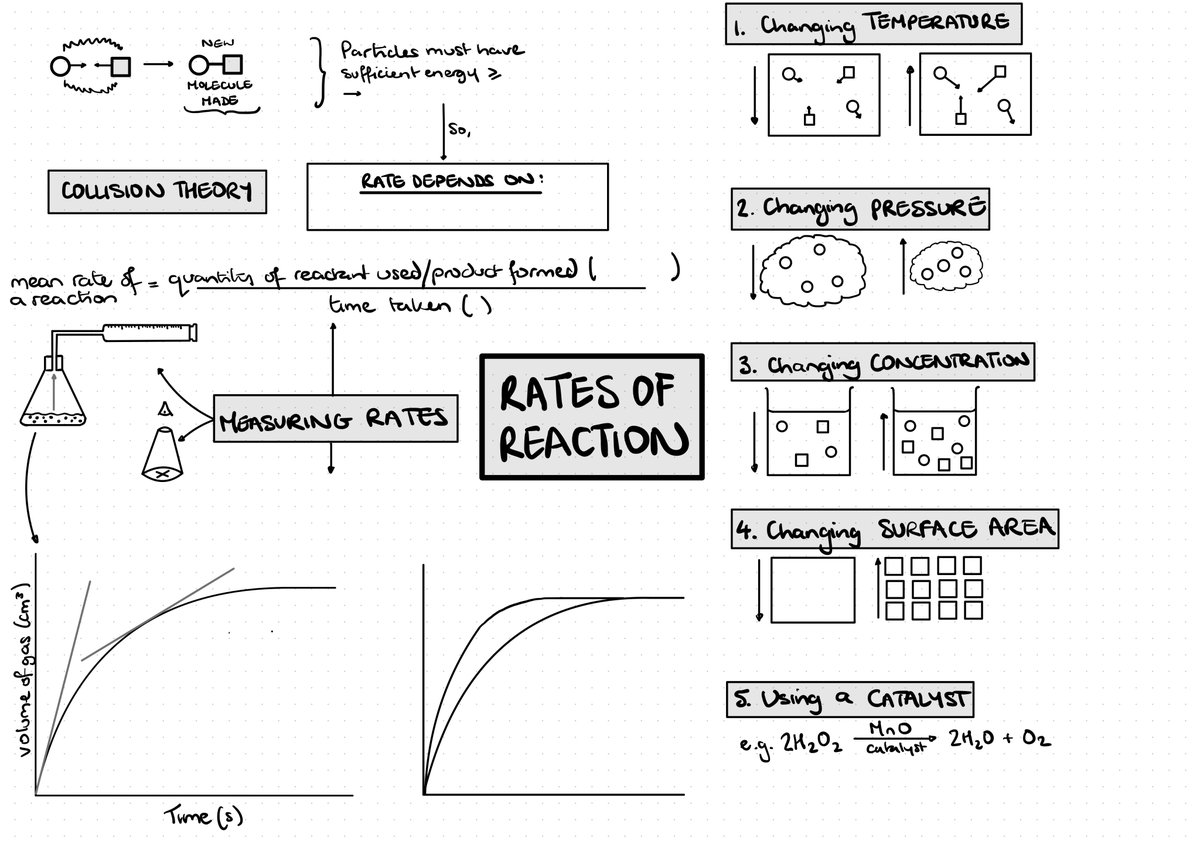 NEW
MOLECULE
MADE
Particles must have
sufficient energy ≥
→
So,
COLLISION THEORY
RATE DEPENDS ON:
mean rate of = quantity of reactant used/product formed ( )
a reaction
time taken ( )
MEASURING RATES
RATES OF
REACTION
volume of gas (cm³)
Time (s)
1. Changing TEMPERATURE
2. Changing PRESSURE
3. Changing CONCENTRATION
4. Changing SURFACE AREA
5. Using a CATALYST
e.g. 2H₂O₂ MnO catalyst → 2H₂O + O₂